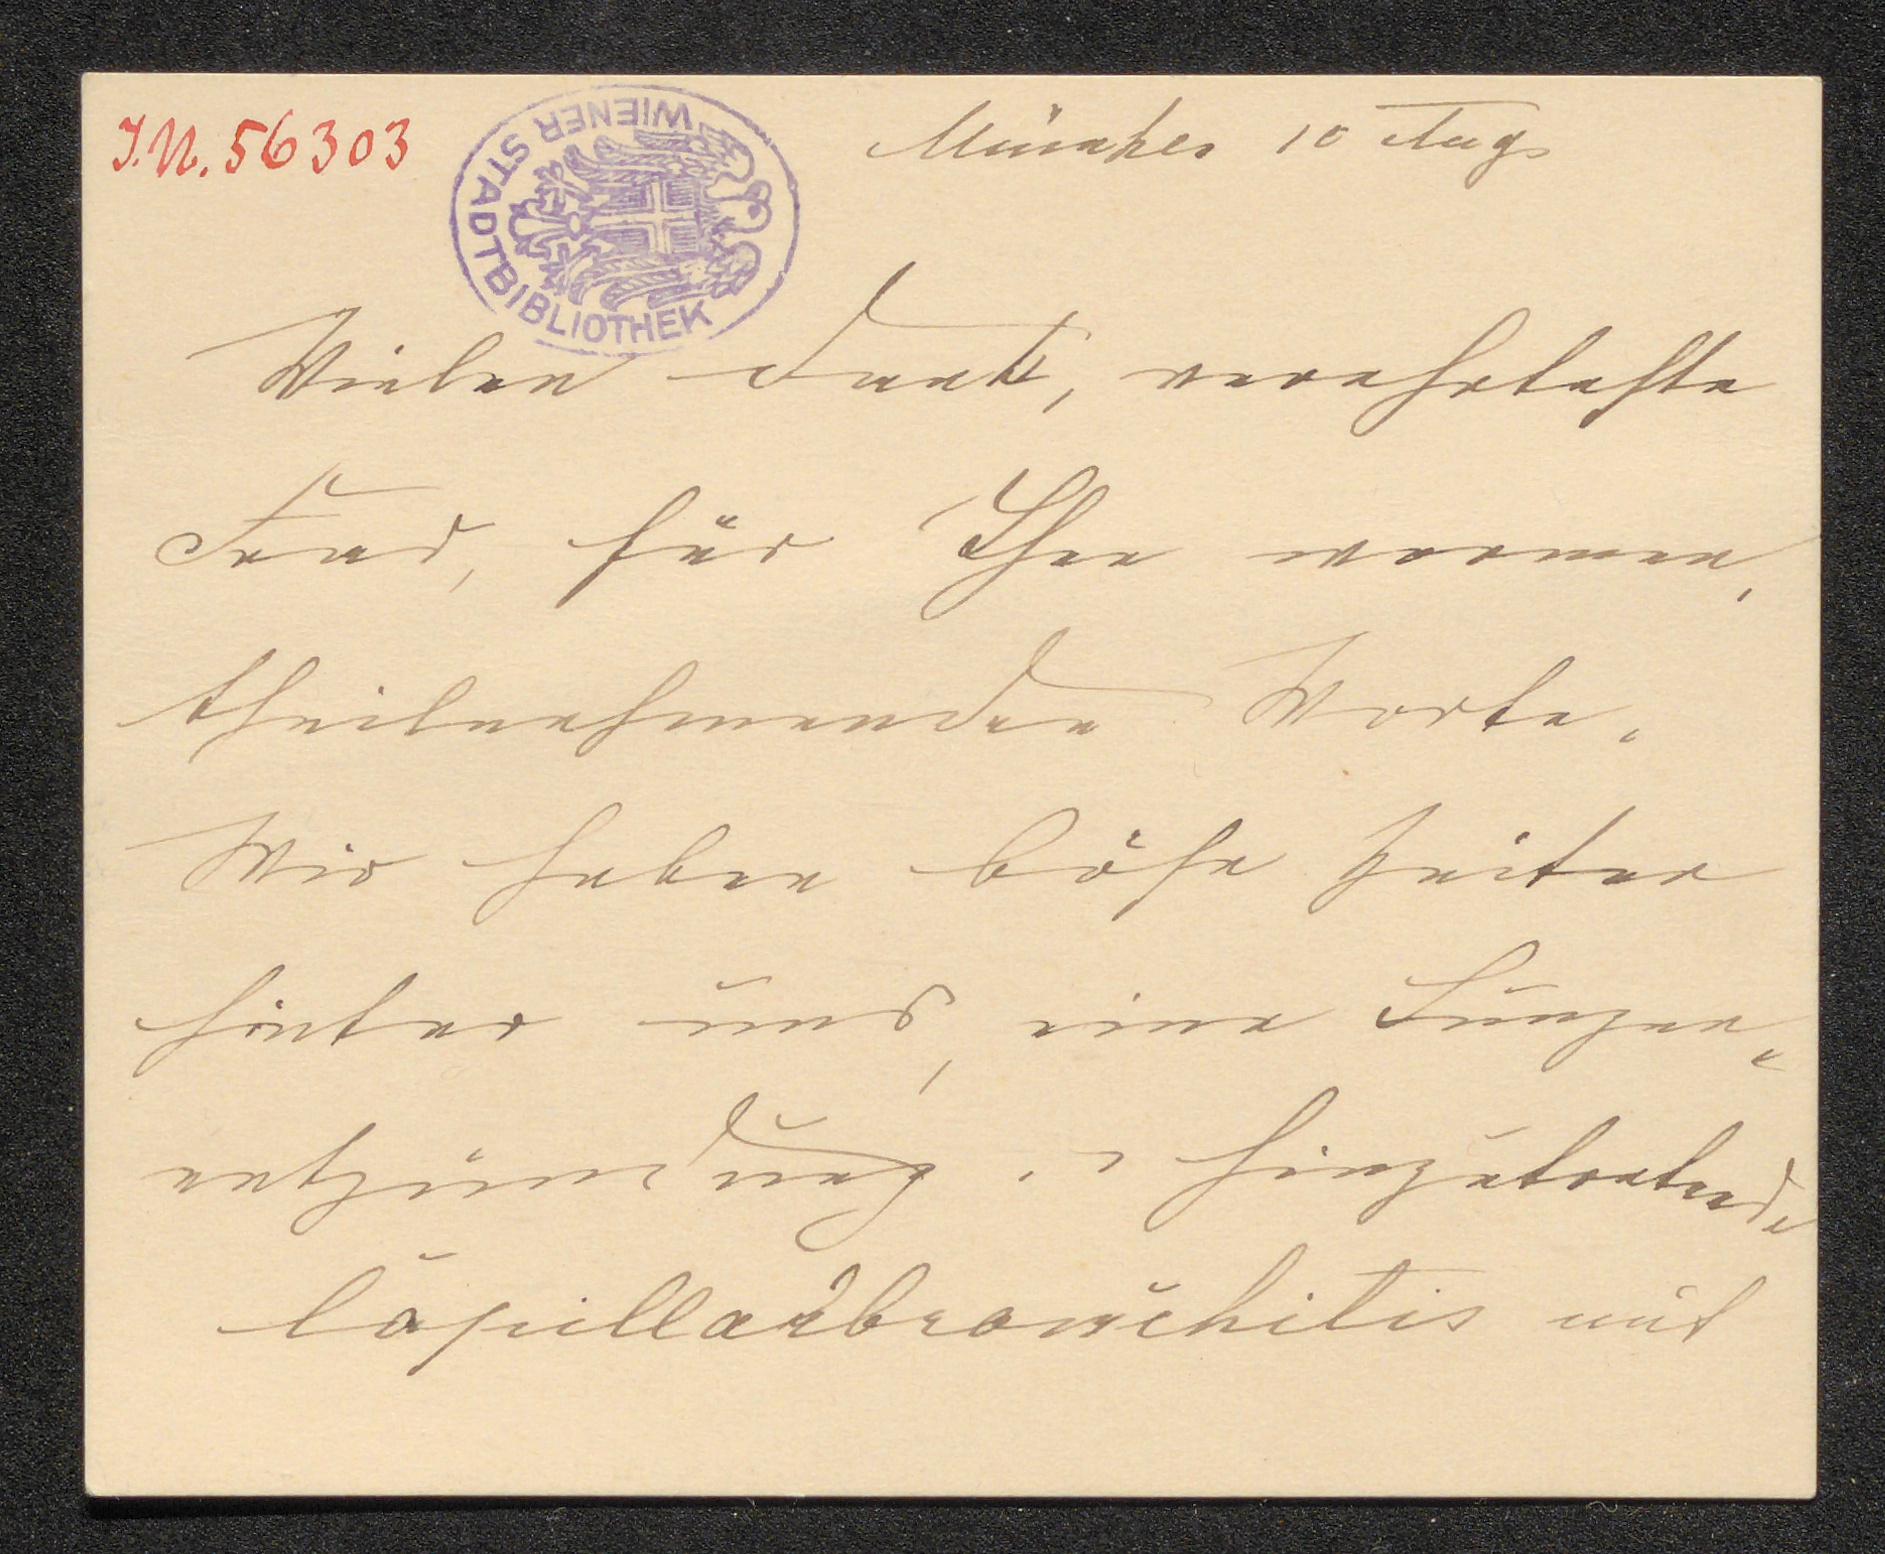 J.N. 56303
WIENER STADTBIBLIOTHEK
München 10 Aug.
Vielen Dank, verehrteste
Frau, für Ihre warmen,
theilnehmenden Worte.
Wir haben böse Zeiten
hinter uns, eine Lungen-
entzündung u hinzutretende
Capillarbronchitis mit